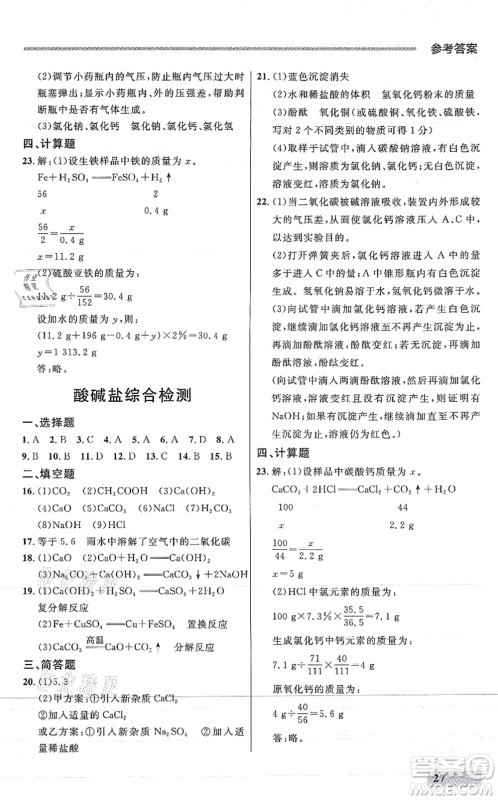 参考答案
(2)调节小药瓶内的气压，防止瓶内气压过大时
瓶塞弹出；显示瓶内、外的压强差，帮助判
断瓶中是否有气体生成。
(3)氯化钠、氯化钙 氯化钠、氯化钙、氯化氢
四、计算题
23. 解：(1)设生铁样品中铁的质量为 x。
Fe+H₂SO₄══FeSO₄+H₂↑
56 2
x 0.4 g
56/2=x/0.4 g
x=11.2 g
(2)硫酸亚铁的质量为：
11.2 g÷56/152=30.4 g
设加水的质量为 y，则：
(11.2 g+196 g-0.4 g+y)×2%=30.4 g
y=1 313.2 g
答：略。
酸碱盐综合检测
一、选择题
1. A 2. B 3. C 4. B 5. A 6. C 7. A 8. A
9. B 10. B 11. C 12. D 13. A 14. D 15. B
二、填空题
16. (1)CO₂ (2)CH₃COOH (3)Ca(OH)₂
(4)CaO (5)NaCl (6)CO (7)Na₂CO₃
(8)NaOH
17. 等于 5.6 雨水中溶解了空气中的二氧化碳
18. (1)CaO (2)CaO+H₂O══Ca(OH)₂
(3)Na₂CO₃+Ca(OH)₂══CaCO₃↓+2NaOH
19. (1)Ca(OH)₂+H₂SO₄══CaSO₄+2H₂O
复分解反应
(2)Fe+CuSO₄══Cu+FeSO₄ 置换反应
(3)CaCO₃══高温CaO+CO₂↑ 分解反应
三、简答题
20. (1)5.3
(2)甲方案：①引入新杂质 CaCl₂
②加入适量的 Na₂CO₃
乙方案：①引入新杂质 CaCl₂ ②加入适量
稀硫酸
21. (1)蓝色沉淀消失
(2)水和稀盐酸的体积 氢氧化钙粉末的质量
(3)酚酞 (或硫酸铜、氧化铁、碳酸钠等，
写对 2 个不同类别的物质可得分)
(4)取样于试管中，滴入碳酸钠溶液，有白色沉
淀产生，溶液变红，溶液中的溶质为氢氧化
钙和氯化钠。
22. (1)当二氧化碳被碱溶液吸收，装置内外形成较
大的气压差，外界气压将氯化钙溶液压入
A、C 中，达到实验目的。
(2)打开弹簧夹后，氯化钙溶液进入 A、C 中，
A 中无明显现象，C 中锥形瓶内有沉淀产
生。氢氧化钠易溶于水，氢氧化钙微溶于水。
(3)向试管中滴加氯化钙溶液，产生白色沉淀，
再滴加酚酞溶液，酚酞溶液变红，则证明还
有 NaOH 剩余。
(向试管中滴入两滴酚酞溶液，溶液变红，
再滴加氯化镁溶液，有沉淀产生，则证明有
NaOH；如果没有沉淀产生，则没有 NaOH
剩余。)
四、计算题
23. 解：(1)设样品中碳酸钙质量为 x。
CaCO₃+2HCl══CaCl₂+H₂O+CO₂↑
100 44
x 2.2 g
100/44=x/2.2 g
x=5 g
(2)HCl 中氯元素的质量为：
100 g×7.3%×35.5/36.5=7.1 g
生成氯化钙中钙的质量为：
7.1 g÷71/111×40/111=4 g
原氧化钙的质量为：
4 g÷40/56=5.6 g
答：略。
27